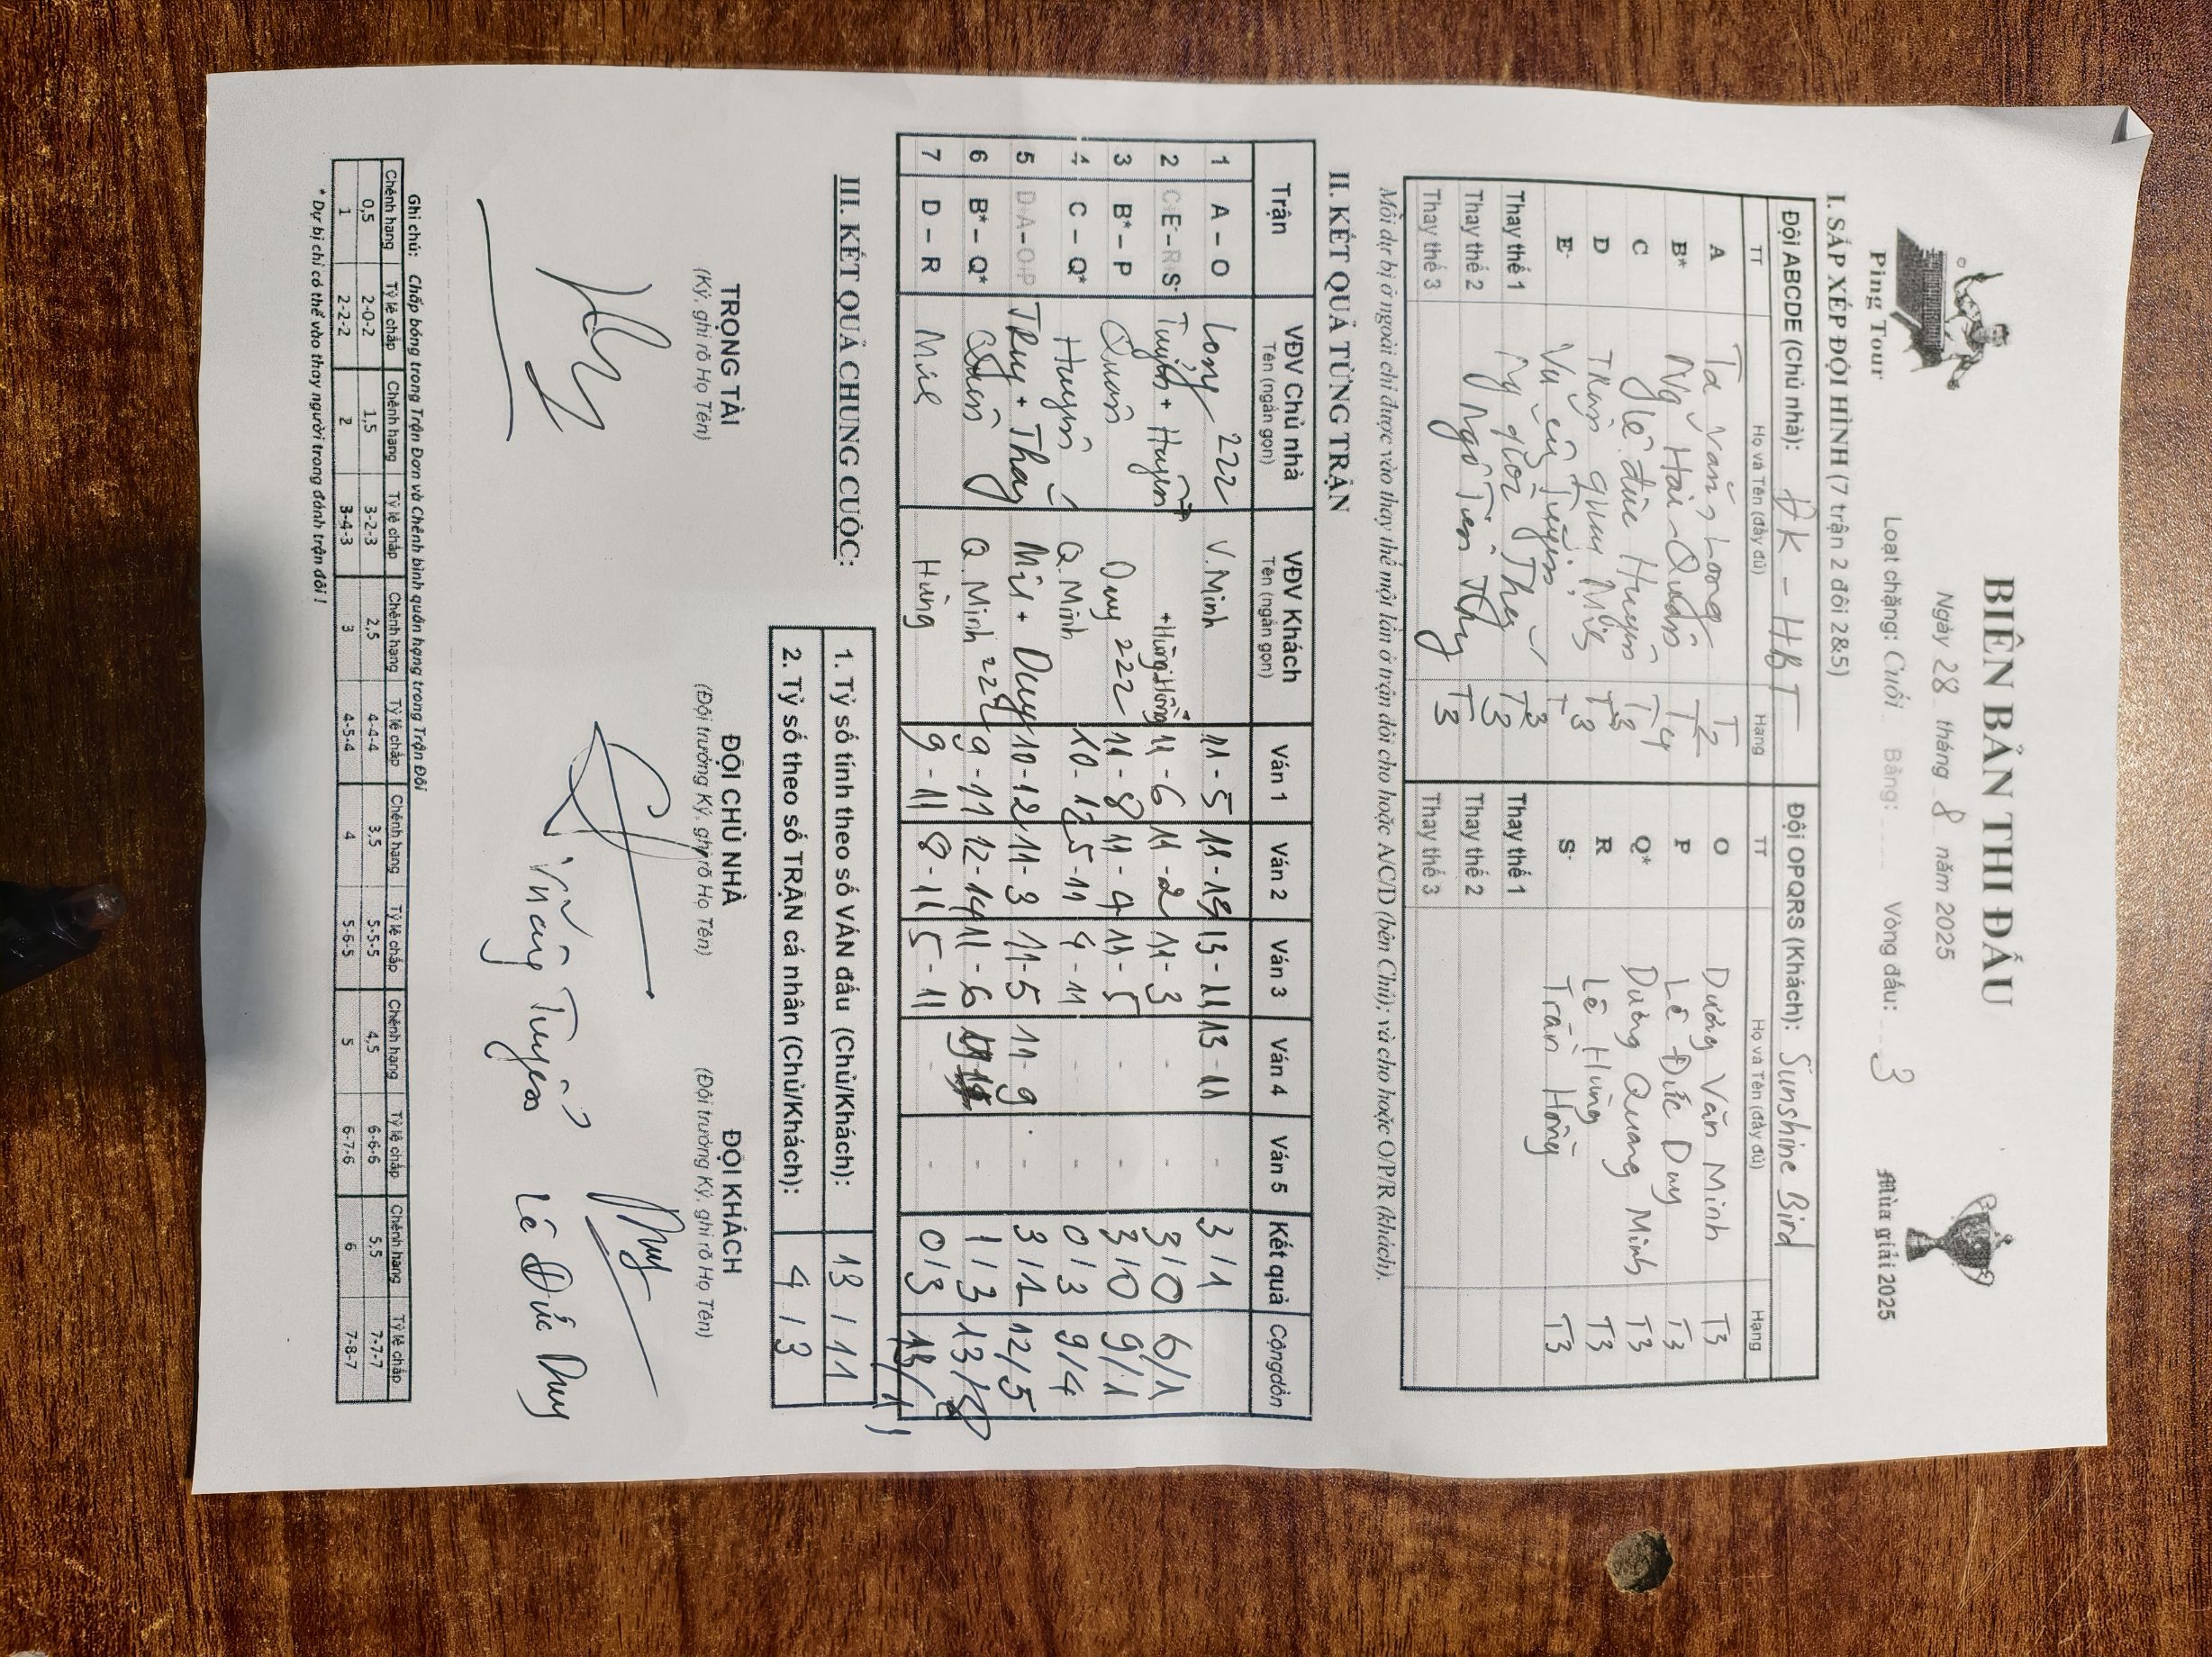 BIÊN BẢN THI ĐẤU
Ngày 28 tháng 8 năm 2025
Ping Tour
Loạt chặng: Cuối Bảng: Vòng đấu: 3
Mùa giải 2025
I. SẮP XẾP ĐỘI HÌNH (7 trận 2 đôi 2&5)
Đội ABCDE (Chủ nhà): ĐK - HBT Đội OPQRS (Khách): Sunshine Bird
TT Họ và Tên (đầy đủ) Hạng TT Họ và Tên (đầy đủ) Hạng
A Tạ Văn Long T2 O Dương Văn Minh T3
B* Ng Hải Quân T4 P Lê Đức Duy T3
C Lê đức Huyên T3 Q* Dương Quang Minh T3
D Trần quang T3 R Lê Hùng T3
E- Vũ Tuyên T3 S- Trần Hồng T3
Thay thế 1 Ng T3 Thay thế 1
Thay thế 2 Ngô Tiến T3 Thay thế 2
Thay thế 3 Thay thế 3
Mỗi dự bị ở ngoài chỉ được vào thay thế một lần ở trận đôi cho hoặc A/C/D (bên Chủ); và cho hoặc O/P/R (khách).
II. KẾT QUẢ TỪNG TRẬN
Trận VĐV Chủ nhà VĐV Khách Ván 1 Ván 2 Ván 3 Ván 4 Ván 5 Kết quả Cộng dồn
Tên (ngắn gọn) Tên (ngắn gọn)
1 A – O Long 222 V.Minh 11 - 5 13 - 11 13 - 11 - 3 / 1
2 C+E- – R+S- Tuyên + Huyên + Hùng Hồng 11 - 6 11 - 2 11 - 3 - - 3 / 0 6/1
3 B* – P Quân Duy 222 11 - 8 11 - 4 11 - 5 - - 3 / 0 9/1
4 C – Q* Huyên Q.Minh 10 - 12 5 - 11 4 - 11 - - 0 / 3 9/4
5 D+A – O+P Mil + Duy 10 - 12 11 - 3 11 - 5 11 - 9 - 3 / 1 12/5
6 B* – Q* Quân Q.Minh 222 9 - 11 12 - 14 11 - 6 - 1 / 3 13/8
7 D – R Hùng 9 - 11 8 - 11 5 - 11 - - 0 / 3 13/11
III. KẾT QUẢ CHUNG CUỘC:
1. Tỷ số tính theo số VÁN đấu (Chủ/Khách): 13 / 11
2. Tỷ số theo số TRẬN cá nhân (Chủ/Khách): 4 / 3
TRỌNG TÀI ĐỘI CHỦ NHÀ ĐỘI KHÁCH
(Ký, ghi rõ Họ Tên) (Đội trưởng Ký, ghi rõ Họ Tên) (Đội trưởng Ký, ghi rõ Họ Tên)
Tuyên Lê Đức Duy
Ghi chú: Chấp bóng trong Trận Đơn và Chênh bình quân hạng trong Trận Đôi
Chênh hạng Tỷ lệ chấp Chênh hạng Tỷ lệ chấp Chênh hạng Tỷ lệ chấp Chênh hạng Tỷ lệ chấp Chênh hạng Tỷ lệ chấp Chênh hạng Tỷ lệ chấp
0,5 2-0-2 1,5 3-2-3 2,5 4-4-4 3,5 5-5-5 4,5 6-6-6 5,5 7-7-7
1 2-2-2 2 3-4-3 3 4-5-4 4 5-6-5 5 6-7-6 6 7-8-7
* Dự bị chỉ có thể vào thay người trong đánh trận đôi !